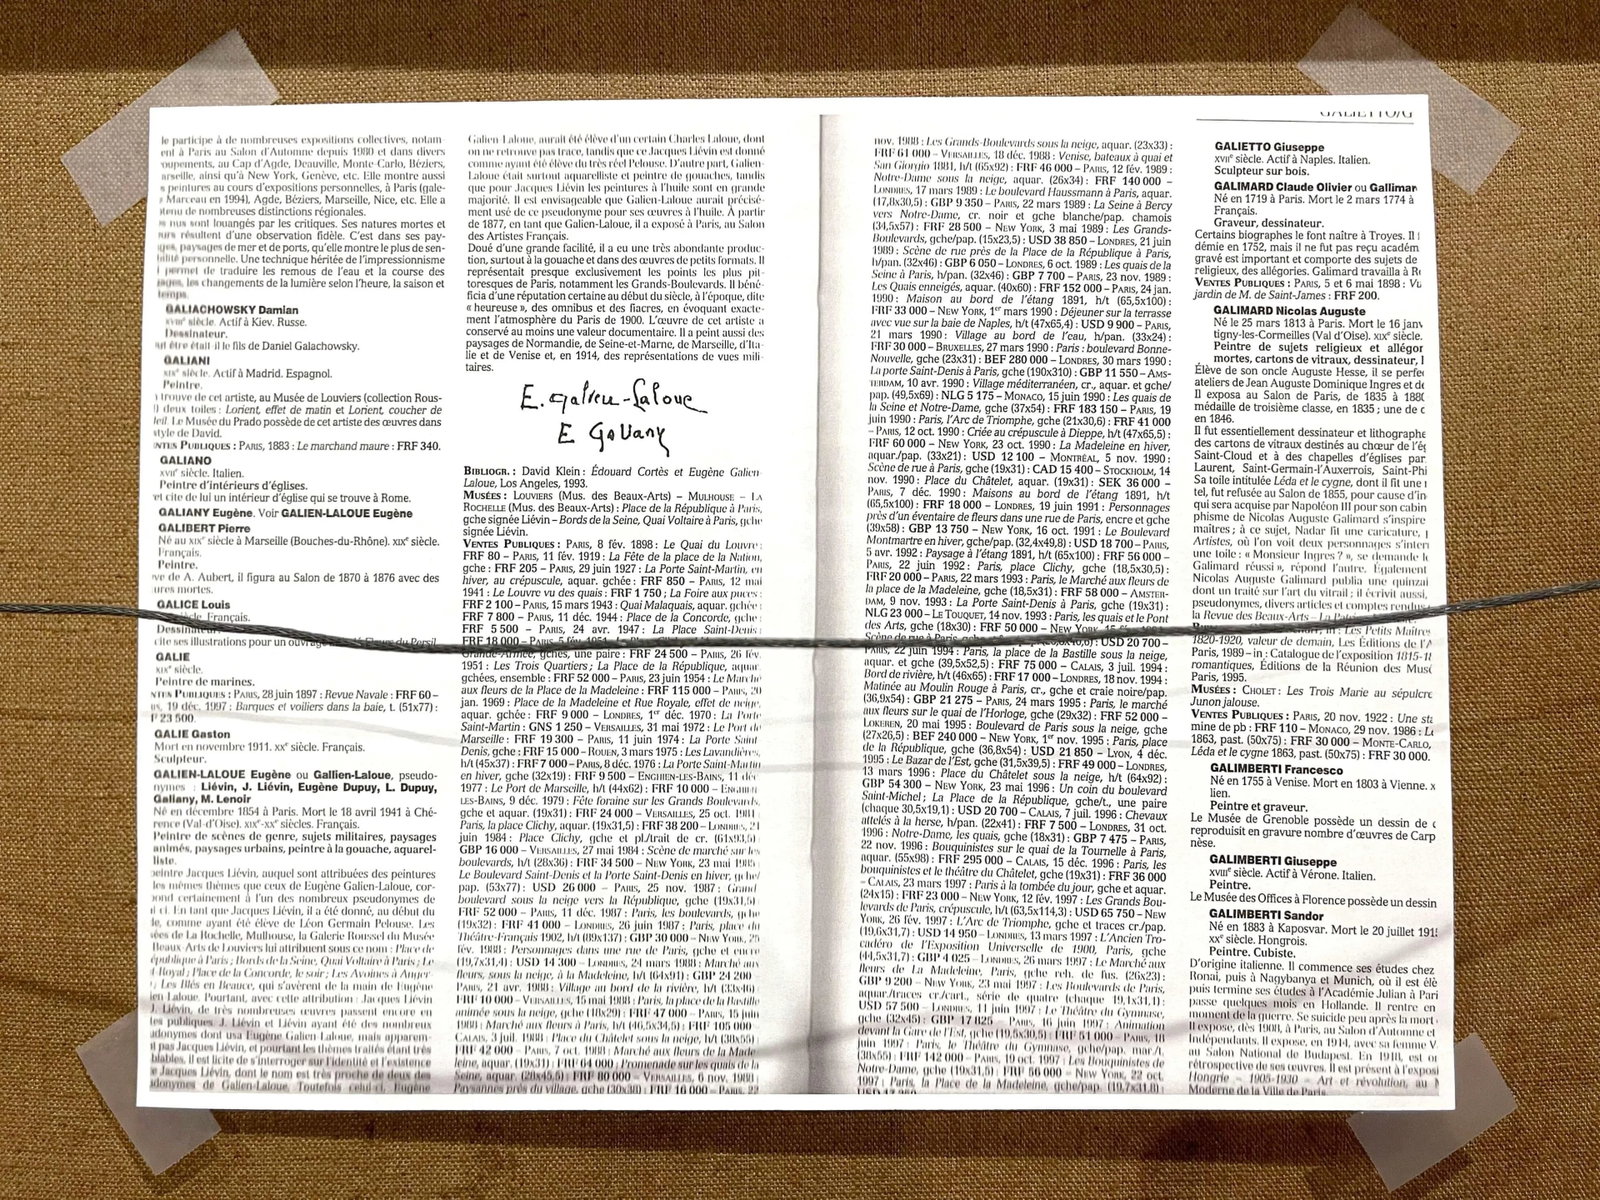 le participe à de nombreuses expositions collectives, notam-
ent à Paris au Salon d'Automne depuis 1980 et dans divers
oupements, au Cap d'Agde, Deauville, Monte-Carlo, Béziers,
arseille, ainsi qu'à New York, Genève, etc. Elle montre aussi
s peintures au cours d'expositions personnelles, à Paris (gale-
Marceau en 1994), Agde, Béziers, Marseille, Nice, etc. Elle a
tenu de nombreuses distinctions régionales.
nus sont louangés par les critiques. Ses natures mortes et
urs résultent d'une observation fidèle. C'est dans ses pay-
ges, paysages de mer et de ports, qu'elle montre le plus de sen-
bilité personnelle. Une technique héritée de l'impressionnisme
permet de traduire les remous de l'eau et la course des
ages, les changements de la lumière selon l'heure, la saison et
temps.
GALIACHOWSKY Damian
XVIIIe siècle. Actif à Kiev. Russe.
Dessinateur.
ut être était il le fils de Daniel Galachowsky.
GALIANI
XIXe siècle. Actif à Madrid. Espagnol.
Peintre.
trouve de cet artiste, au Musée de Louviers (collection Rous-
l) deux toiles : Lorient, effet de matin et Lorient, coucher de
leil. Le Musée du Prado possède de cet artiste des œuvres dans
style de David.
NTES PUBLIQUES : PARIS, 1883 : Le marchand maure : FRF 340.
GALIANO
XVIIe siècle. Italien.
Peintre d'intérieurs d'églises.
et cite de lui un intérieur d'église qui se trouve à Rome.
GALIANY Eugène. Voir GALIEN-LALOUE Eugène
GALIBERT Pierre
Né au XIXe siècle à Marseille (Bouches-du-Rhône). XIXe siècle.
Français.
Peintre.
ve de A. Aubert, il figura au Salon de 1870 à 1876 avec des
ures mortes.
GALICE Louis
siècle. Français.
Dessinateur.
ite ses illustrations pour un ouvrage
GALIE
XIXe siècle.
Peintre de marines.
NTES PUBLIQUES : PARIS, 28 juin 1897 : Revue Navale : FRF 60 –
us, 19 déc. 1997 : Barques et voiliers dans la baie, t. (51x77) :
F 23 500.
GALIE Gaston
Mort en novembre 1911. XXe siècle. Français.
Sculpteur.
GALIEN-LALOUE Eugène ou Gallien-Laloue, pseudo-
nymes : Liévin, J. Liévin, Eugène Dupuy, L. Dupuy,
Galiany, M. Lenoir
Né en décembre 1854 à Paris. Mort le 18 avril 1941 à Ché-
rence (Val-d'Oise). XIXe-XXe siècles. Français.
Peintre de scènes de genre, sujets militaires, paysages
animés, paysages urbains, peintre à la gouache, aquarel-
liste.
peintre Jacques Liévin, auquel sont attribuées des peintures
les mêmes thèmes que ceux de Eugène Galien-Laloue, cor-
pond certainement à l'un des nombreux pseudonymes de
ci. En tant que Jacques Liévin, il a été donné, au début du
le, comme ayant été élève de Léon Germain Pelouse. Les
ées de La Rochelle, Mulhouse, la Galerie Roussel du Musée
Beaux Arts de Louviers lui attribuent sous ce nom : Place de
épublique à Paris ; Bords de la Seine, Quai Voltaire à Paris ; Le
Royal ; Place de la Concorde, le soir ; Les Avoines à Anger
; Les Blés en Beauce, qui s'avèrent de la main de Eugène
ien Laloue. Pourtant, avec cette attribution : Jacques Liévin
J. Liévin, de très nombreuses œuvres passent encore en
tes publiques J. Liévin et Liévin ayant été des nombreux
udonymes dont usa Eugène Galien Laloue, mais apparem-
nt pas Jacques Liévin, et pourtant les thèmes traités étant très
blables, il est licite de s'interroger sur l'identité et l'existence
e Jacques Liévin, dont le nom est très proche de deux des
udonymes de Galien-Laloue. Toutefois celui-ci, Eugène
Galien-Laloue, aurait été élève d'un certain Charles Laloue, dont
on ne retrouve pas trace, tandis que ce Jacques Liévin est donné
comme ayant été élève du très réel Pelouse. D'autre part, Galien-
Laloue était surtout aquarelliste et peintre de gouaches, tandis
que pour Jacques Liévin les peintures à l'huile sont en grande
majorité. Il est envisageable que Galien-Laloue aurait précisé-
ment usé de ce pseudonyme pour ses œuvres à l'huile. À partir
de 1877, en tant que Galien-Laloue, il a exposé à Paris, au Salon
des Artistes Français.
Doué d'une grande facilité, il a eu une très abondante produc-
tion, surtout à la gouache et dans des œuvres de petits formats. Il
représentait presque exclusivement les points les plus pit-
toresques de Paris, notamment les Grands-Boulevards. Il béné-
ficia d'une réputation certaine au début du siècle, à l'époque, dite
« heureuse », des omnibus et des fiacres, en évoquant exacte-
ment l'atmosphère du Paris de 1900. L'œuvre de cet artiste a
conservé au moins une valeur documentaire. Il a peint aussi des
paysages de Normandie, de Seine-et-Marne, de Marseille, d'Ita-
lie et de Venise et, en 1914, des représentations de vues mili-
taires.
E. Galien-Laloue
E Galiany
BIBLIOGR. : David Klein : Édouard Cortès et Eugène Galien-
Laloue, Los Angeles, 1993.
MUSÉES : LOUVIERS (Mus. des Beaux-Arts) – MULHOUSE – LA
ROCHELLE (Mus. des Beaux-Arts) : Place de la République à Paris,
gche signée Liévin – Bords de la Seine, Quai Voltaire à Paris, gche
signée Liévin.
VENTES PUBLIQUES : PARIS, 8 fév. 1898 : Le Quai du Louvre :
FRF 80 – PARIS, 11 fév. 1919 : La Fête de la place de la Nation,
gche : FRF 205 – PARIS, 29 juin 1927 : La Porte Saint-Martin, en
hiver, au crépuscule, aquar. gchée : FRF 850 – PARIS, 12 mai
1941 : Le Louvre vu des quais : FRF 1 750 ; La Foire aux puces :
FRF 2 100 – PARIS, 15 mars 1943 : Quai Malaquais, aquar. gchée :
FRF 7 800 – PARIS, 11 déc. 1944 : Place de la Concorde, gche :
FRF 5 500 – PARIS, 24 avr. 1947 : La Place Saint-Denis :
FRF 18 000 – PARIS, 5 fév. 1951 :
Grande-Armée, gches, une paire : FRF 24 500 – PARIS, 26 fév.
1951 : Les Trois Quartiers ; La Place de la République, aquar.
gchées, ensemble : FRF 52 000 – PARIS, 23 juin 1954 : Le Marché
aux fleurs de la Place de la Madeleine : FRF 115 000 – PARIS, 20
jan. 1969 : Place de la Madeleine et Rue Royale, effet de neige,
aquar. gchée : FRF 9 000 – LONDRES, 1er déc. 1970 : La Porte
Saint-Martin : GNS 1 250 – VERSAILLES, 31 mai 1972 : Le Port de
Marseille : FRF 19 300 – PARIS, 11 juin 1974 : La Porte Saint
Denis, gche : FRF 15 000 – ROUEN, 3 mars 1975 : Les Lavandières,
h/t (45x37) : FRF 7 000 – PARIS, 8 déc. 1976 : La Porte Saint-Martin
en hiver, gche (32x19) : FRF 9 500 – ENGHIEN-LES-BAINS, 11 déc
1977 : Le Port de Marseille, h/t (44x62) : FRF 10 000 – ENGHIEN
LES-BAINS, 9 déc. 1979 : Fête foraine sur les Grands Boulevards,
gche et aquar. (19x31) : FRF 24 000 – VERSAILLES, 25 oct. 1981
Paris, la place Clichy, aquar. (19x31,5) : FRF 38 200 – LONDRES, 21
juin 1984 : Place Clichy, gche et pl./trait de cr. (61x93,5) :
GBP 16 000 – VERSAILLES, 27 mai 1984 : Scène de marché sur les
boulevards, h/t (28x36) : FRF 34 500 – NEW YORK, 23 mai 1985 :
Le Boulevard Saint-Denis et la Porte Saint-Denis en hiver, gche/
pap. (53x77) : USD 26 000 – PARIS, 25 nov. 1987 : Grand
boulevard sous la neige vers la République, gche (19x31,5)
FRF 52 000 – PARIS, 11 déc. 1987 : Paris, les boulevards, gche
(19x32) : FRF 41 000 – PARIS, 26 juin 1987 : Paris, place du
Théâtre-Français 1902, h/t (89x137) : GBP 30 000 – NEW YORK, 25
fév. 1988 : Personnages dans une rue de Paris, gche et encre
(19,7x31,4) : USD 14 300 – LONDRES, 24 mars 1988 : Marché aux
fleurs, sous la neige, à la Madeleine, h/t (64x91) : GBP 24 200
PARIS, 21 avr. 1988 : Village au bord de la rivière, h/t (33x46)
FRF 10 000 – VERSAILLES, 15 mai 1988 : Paris, la place de la Bastille
animée sous la neige, gche (18x29) : FRF 47 000 – PARIS, 15 juin
1988 : Marché aux fleurs à Paris, h/t (46,5x34,5) : FRF 105 000
CALAIS, 3 juil. 1988 : Place du Châtelet sous la neige, h/t (38x55)
FRF 42 000 – PARIS, 7 oct. 1988 : Marché aux fleurs de la Made
leine, aquar. (19x31) : FRF 64 000 ; Promenade sur les quais de la
Seine, aquar. (28x45,5) : FRF 80 000 – VERSAILLES, 6 nov. 1988 :
Paysannes près du village, gche (30x38) : FRF 16 000 – PARIS, 22
nov. 1988 : Les Grands-Boulevards sous la neige, aquar. (23x33) :
FRF 61 000 – VERSAILLES, 18 déc. 1988 : Venise, bateaux à quai et
San Giorgio 1881, h/t (65x92) : FRF 46 000 – PARIS, 12 fév. 1989 :
Notre-Dame sous la neige, aquar. (26x34) : FRF 140 000 –
LONDRES, 17 mars 1989 : Le boulevard Haussmann à Paris, aquar.
(17,8x30,5) : GBP 9 350 – PARIS, 22 mars 1989 : La Seine à Bercy
vers Notre-Dame, cr. noir et gche blanche/pap. chamois
(34,5x57) : FRF 28 500 – NEW YORK, 3 mai 1989 : Les Grands-
Boulevards, gche/pap. (15x23,5) : USD 38 850 – LONDRES, 21 juin
1989 : Scène de rue près de la Place de la République à Paris,
h/pan. (32x46) : GBP 6 050 – LONDRES, 6 oct. 1989 : Les quais de la
Seine à Paris, h/pan. (32x46) : GBP 7 700 – PARIS, 23 nov. 1989 :
Les Quais enneigés, aquar. (40x60) : FRF 152 000 – PARIS, 24 jan.
1990 : Maison au bord de l'étang 1891, h/t (65,5x100) :
FRF 33 000 – NEW YORK, 1er mars 1990 : Déjeuner sur la terrasse
avec vue sur la baie de Naples, h/t (47x65,4) : USD 9 900 – PARIS,
21 mars 1990 : Village au bord de l'eau, h/pan. (33x24) :
FRF 30 000 – BRUXELLES, 27 mars 1990 : Paris : boulevard Bonne-
Nouvelle, gche (23x31) : BEF 280 000 – LONDRES, 30 mars 1990 :
La porte Saint-Denis à Paris, gche (190x310) : GBP 11 550 – AMS-
TERDAM, 10 avr. 1990 : Village méditerranéen, cr., aquar. et gche/
pap. (49,5x69) : NLG 5 175 – MONACO, 15 juin 1990 : Les quais de
la Seine et Notre-Dame, gche (37x54) : FRF 183 150 – PARIS, 19
juin 1990 : Paris, l'Arc de Triomphe, gche (21x30,6) : FRF 41 000
– PARIS, 12 oct. 1990 : Criée au crépuscule à Dieppe, h/t (47x65,5) :
FRF 60 000 – NEW YORK, 23 oct. 1990 : La Madeleine en hiver,
aquar./pap. (33x21) : USD 12 100 – MONTRÉAL, 5 nov. 1990 :
Scène de rue à Paris, gche (19x31) : CAD 15 400 – STOCKHOLM, 14
nov. 1990 : Place du Châtelet, aquar. (19x31) : SEK 36 000 –
PARIS, 7 déc. 1990 : Maisons au bord de l'étang 1891, h/t
(65,5x100) : FRF 18 000 – LONDRES, 19 juin 1991 : Personnages
près d'un éventaire de fleurs dans une rue de Paris, encre et gche
(39x58) : GBP 13 750 – NEW YORK, 16 oct. 1991 : Le Boulevard
Montmartre en hiver, gche/pap. (32,4x49,8) : USD 18 700 – PARIS,
5 avr. 1992 : Paysage à l'étang 1891, h/t (65x100) : FRF 56 000 –
PARIS, 22 juin 1992 : Paris, place Clichy, gche (18,5x30,5) :
FRF 20 000 – PARIS, 22 mars 1993 : Paris, le Marché aux fleurs de
la place de la Madeleine, gche (18,5x31) : FRF 58 000 – AMSTER-
DAM, 9 nov. 1993 : La Porte Saint-Denis à Paris, gche (19x31) :
NLG 23 000 – LE TOUQUET, 14 nov. 1993 : Paris, les quais et le Pont
des Arts, gche (18x30) : FRF 50 000 – NEW YORK,
Scène de rue à Paris, gche USD 20 700 –
PARIS, 22 juin 1994 : Paris, la place de la Bastille sous la neige,
aquar. et gche (39,5x52,5) : FRF 75 000 – CALAIS, 3 juil. 1994 :
Bord de rivière, h/t (46x65) : FRF 17 000 – LONDRES, 18 nov. 1994 :
Matinée au Moulin Rouge à Paris, cr., gche et craie noire/pap.
(36,9x54) : GBP 21 275 – PARIS, 24 mars 1995 : Paris, le marché
aux fleurs sur le quai de l'Horloge, gche (29x32) : FRF 52 000 –
LOKEREN, 20 mai 1995 : Boulevard de Paris sous la neige, gche
(27x26,5) : BEF 240 000 – NEW YORK, 1er nov. 1995 : Paris, place
de la République, gche (36,8x54) : USD 21 850 – LYON, 4 déc.
1995 : Le Bazar de l'Est, gche (31,5x39,5) : FRF 49 000 – LONDRES,
13 mars 1996 : Place du Châtelet sous la neige, h/t (64x92) :
GBP 54 300 – NEW YORK, 23 mai 1996 : Un coin du boulevard
Saint-Michel ; La Place de la République, gche/t., une paire
(chaque 30,5x19,1) : USD 20 700 – CALAIS, 7 juil. 1996 : Chevaux
attelés à la herse, h/pan. (22x41) : FRF 7 500 – LONDRES, 31 oct.
1996 : Notre-Dame, les quais, gche (18x31) : GBP 7 475 – PARIS,
22 nov. 1996 : Bouquinistes sur le quai de la Tournelle à Paris,
aquar. (55x98) : FRF 295 000 – CALAIS, 15 déc. 1996 : Paris, les
bouquinistes et le théâtre du Châtelet, gche (19x31) : FRF 36 000
– CALAIS, 23 mars 1997 : Paris à la tombée du jour, gche et aquar.
(24x15) : FRF 23 000 – NEW YORK, 12 fév. 1997 : Les Grands Bou-
levards de Paris, crépuscule, h/t (63,5x114,3) : USD 65 750 – NEW
YORK, 26 fév. 1997 : L'Arc de Triomphe, gche et traces cr./pap.
(19,6x31,7) : USD 14 950 – LONDRES, 13 mars 1997 : L'Ancien Tro-
cadéro de l'Exposition Universelle de 1900, Paris, gche
(44,5x31,7) : GBP 4 025 – LONDRES, 26 mars 1997 : Le Marché aux
fleurs de La Madeleine, Paris, gche reh. de fus. (26x23) :
GBP 9 200 – NEW YORK, 23 mai 1997 : Les Boulevards de Paris,
aquar./traces cr./cart., série de quatre (chaque 19,1x31,1) :
USD 57 500 – LONDRES, 11 juin 1997 : Le Théâtre du Gymnase,
gche (32x45) : GBP 17 825 – PARIS, 16 juin 1997 : Animation
devant la Gare de l'Est, gche (19,5x30,5) : FRF 51 000 – PARIS, 18
juin 1997 : Paris, le Théâtre du Gymnase, gche/pap. mar./t.
(38x55) : FRF 142 000 – PARIS, 19 oct. 1997 : Les Bouquinistes de
Notre-Dame, gche (19x31,5) : FRF 56 000 – NEW YORK, 22 oct.
1997 : Paris, la Place de la Madeleine, gche/pap. (19,7x31,8) :
GALIETTO/G
GALIETTO Giuseppe
XVIIe siècle. Actif à Naples. Italien.
Sculpteur sur bois.
GALIMARD Claude Olivier ou Gallimar
Né en 1719 à Paris. Mort le 2 mars 1774 à
Français.
Graveur, dessinateur.
Certains biographes le font naître à Troyes. Il
démie en 1752, mais il ne fut pas reçu académ
gravé est important et comporte des sujets de
religieux, des allégories. Galimard travailla à
VENTES PUBLIQUES : PARIS, 5 et 6 mai 1898 :
jardin de M. de Saint-James : FRF 200.
GALIMARD Nicolas Auguste
Né le 25 mars 1813 à Paris. Mort le 16 janv
tigny-les-Cormeilles (Val d'Oise). XIXe siècle.
Peintre de sujets religieux et allégor
mortes, cartons de vitraux, dessinateur, l
Élève de son oncle Auguste Hesse, il se perfe
ateliers de Jean Auguste Dominique Ingres et de
Il exposa au Salon de Paris, de 1835 à 1880
médaille de troisième classe, en 1835 ; une de
en 1846.
Il fut essentiellement dessinateur et lithographe
des cartons de vitraux destinés au chœur de l'ég
Saint-Cloud et à des chapelles d'églises par
Laurent, Saint-Germain-l'Auxerrois, Saint-Phi
Sa toile intitulée Léda et le cygne, dont il fit une
tel, fut refusée au Salon de 1855, pour cause d'in
qui sera acquise par Napoléon III pour son cabin
phisme de Nicolas Auguste Galimard s'inspire
maîtres ; à ce sujet, Nadar fit une caricature,
Artistes, où l'on voit deux personnages s'inter
une toile : « Monsieur Ingres ? », se demande l
Galimard réussi », répond l'autre. Également
Nicolas Auguste Galimard publia une quinzai
dont un traité sur l'art du vitrail ; il écrivit aussi,
pseudonymes, divers articles et comptes rendus
la Revue des Beaux-Arts
in : Les Petits Maîtres
1820-1920, valeur de demain, Les Éditions de l'
Paris, 1989 – in : Catalogue de l'exposition 1815-1
romantiques, Éditions de la Réunion des Musé
Paris, 1995.
MUSÉES : CHOLET : Les Trois Marie au sépulcre
Junon jalouse.
VENTES PUBLIQUES : PARIS, 20 nov. 1922 : Une sta
mine de pb : FRF 110 – MONACO, 29 nov. 1986 :
1863, past. (50x75) : FRF 30 000 – MONTE-CARLO,
Léda et le cygne 1863, past. (50x75) : FRF 30 000.
GALIMBERTI Francesco
Né en 1755 à Venise. Mort en 1803 à Vienne. x
lien.
Peintre et graveur.
Le Musée de Grenoble possède un dessin de
reproduisit en gravure nombre d'œuvres de Carp
nèse.
GALIMBERTI Giuseppe
XVIIIe siècle. Actif à Vérone. Italien.
Peintre.
Le Musée des Offices à Florence possède un dessin
GALIMBERTI Sandor
Né en 1883 à Kaposvar. Mort le 20 juillet 191
XXe siècle. Hongrois.
Peintre. Cubiste.
D'origine italienne. Il commence ses études chez
Ronai, puis à Nagybanya et Munich, où il est élè
puis termine ses études à l'Académie Julian à Pari
passe quelques mois en Hollande. Il rentre en
moment de la guerre. Se suicide peu après la mort
Il expose, dès 1908, à Paris, au Salon d'Automne et
Indépendants. Il expose, en 1914, avec sa femme V
au Salon National de Budapest. En 1918, est or
rétrospective de ses œuvres. Il est présenté à l'exposi
Hongrie – 1905-1930 – Art et révolution, au M
Moderne de la Ville de Paris.